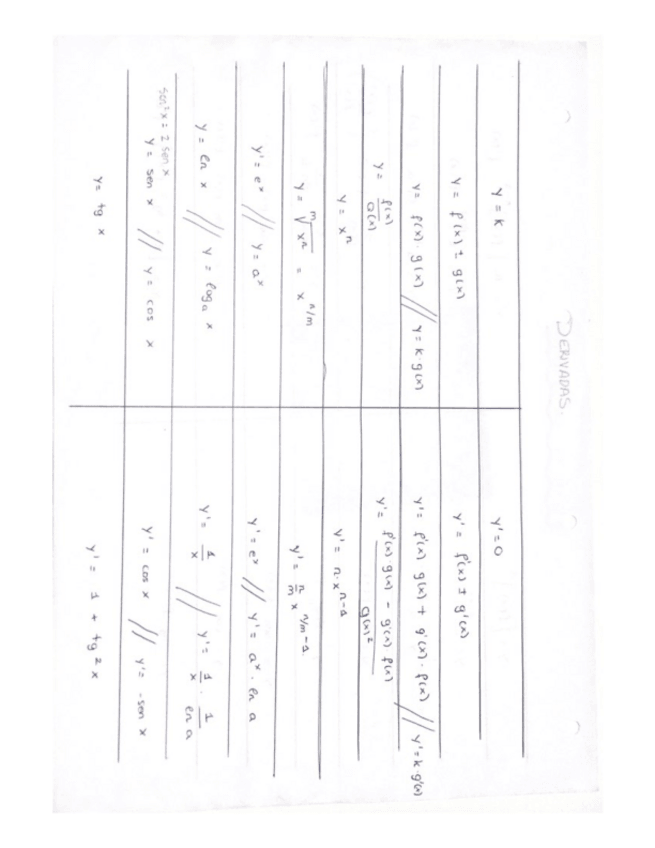 DERIVADAS.
y = k    y' = 0
y = f(x) ± g(x)    y' = f'(x) ± g'(x)
y = f(x) · g(x) // y = k · g(x)    y' = f'(x) g(x) + g'(x) · f(x) // y' = k · g'(x)
y = f(x)/g(x)    y' = f'(x) g(x) - g'(x) · f(x) / g(x)²
y = xⁿ    y' = n · x^(n-1)
y = ᵐ√xⁿ = x^(n/m)    y' = n/m x^(n/m - 1)
y' = eˣ // y = aˣ    y' = eˣ // y' = aˣ · ln a
y = ln x // y = logₐ x    y' = 1/x // y' = 1/x · 1/ln a
sen²x = 2 sen x
y = sen x // y = cos x    y' = cos x // y' = -sen x
y = tg x    y' = 1 + tg² x